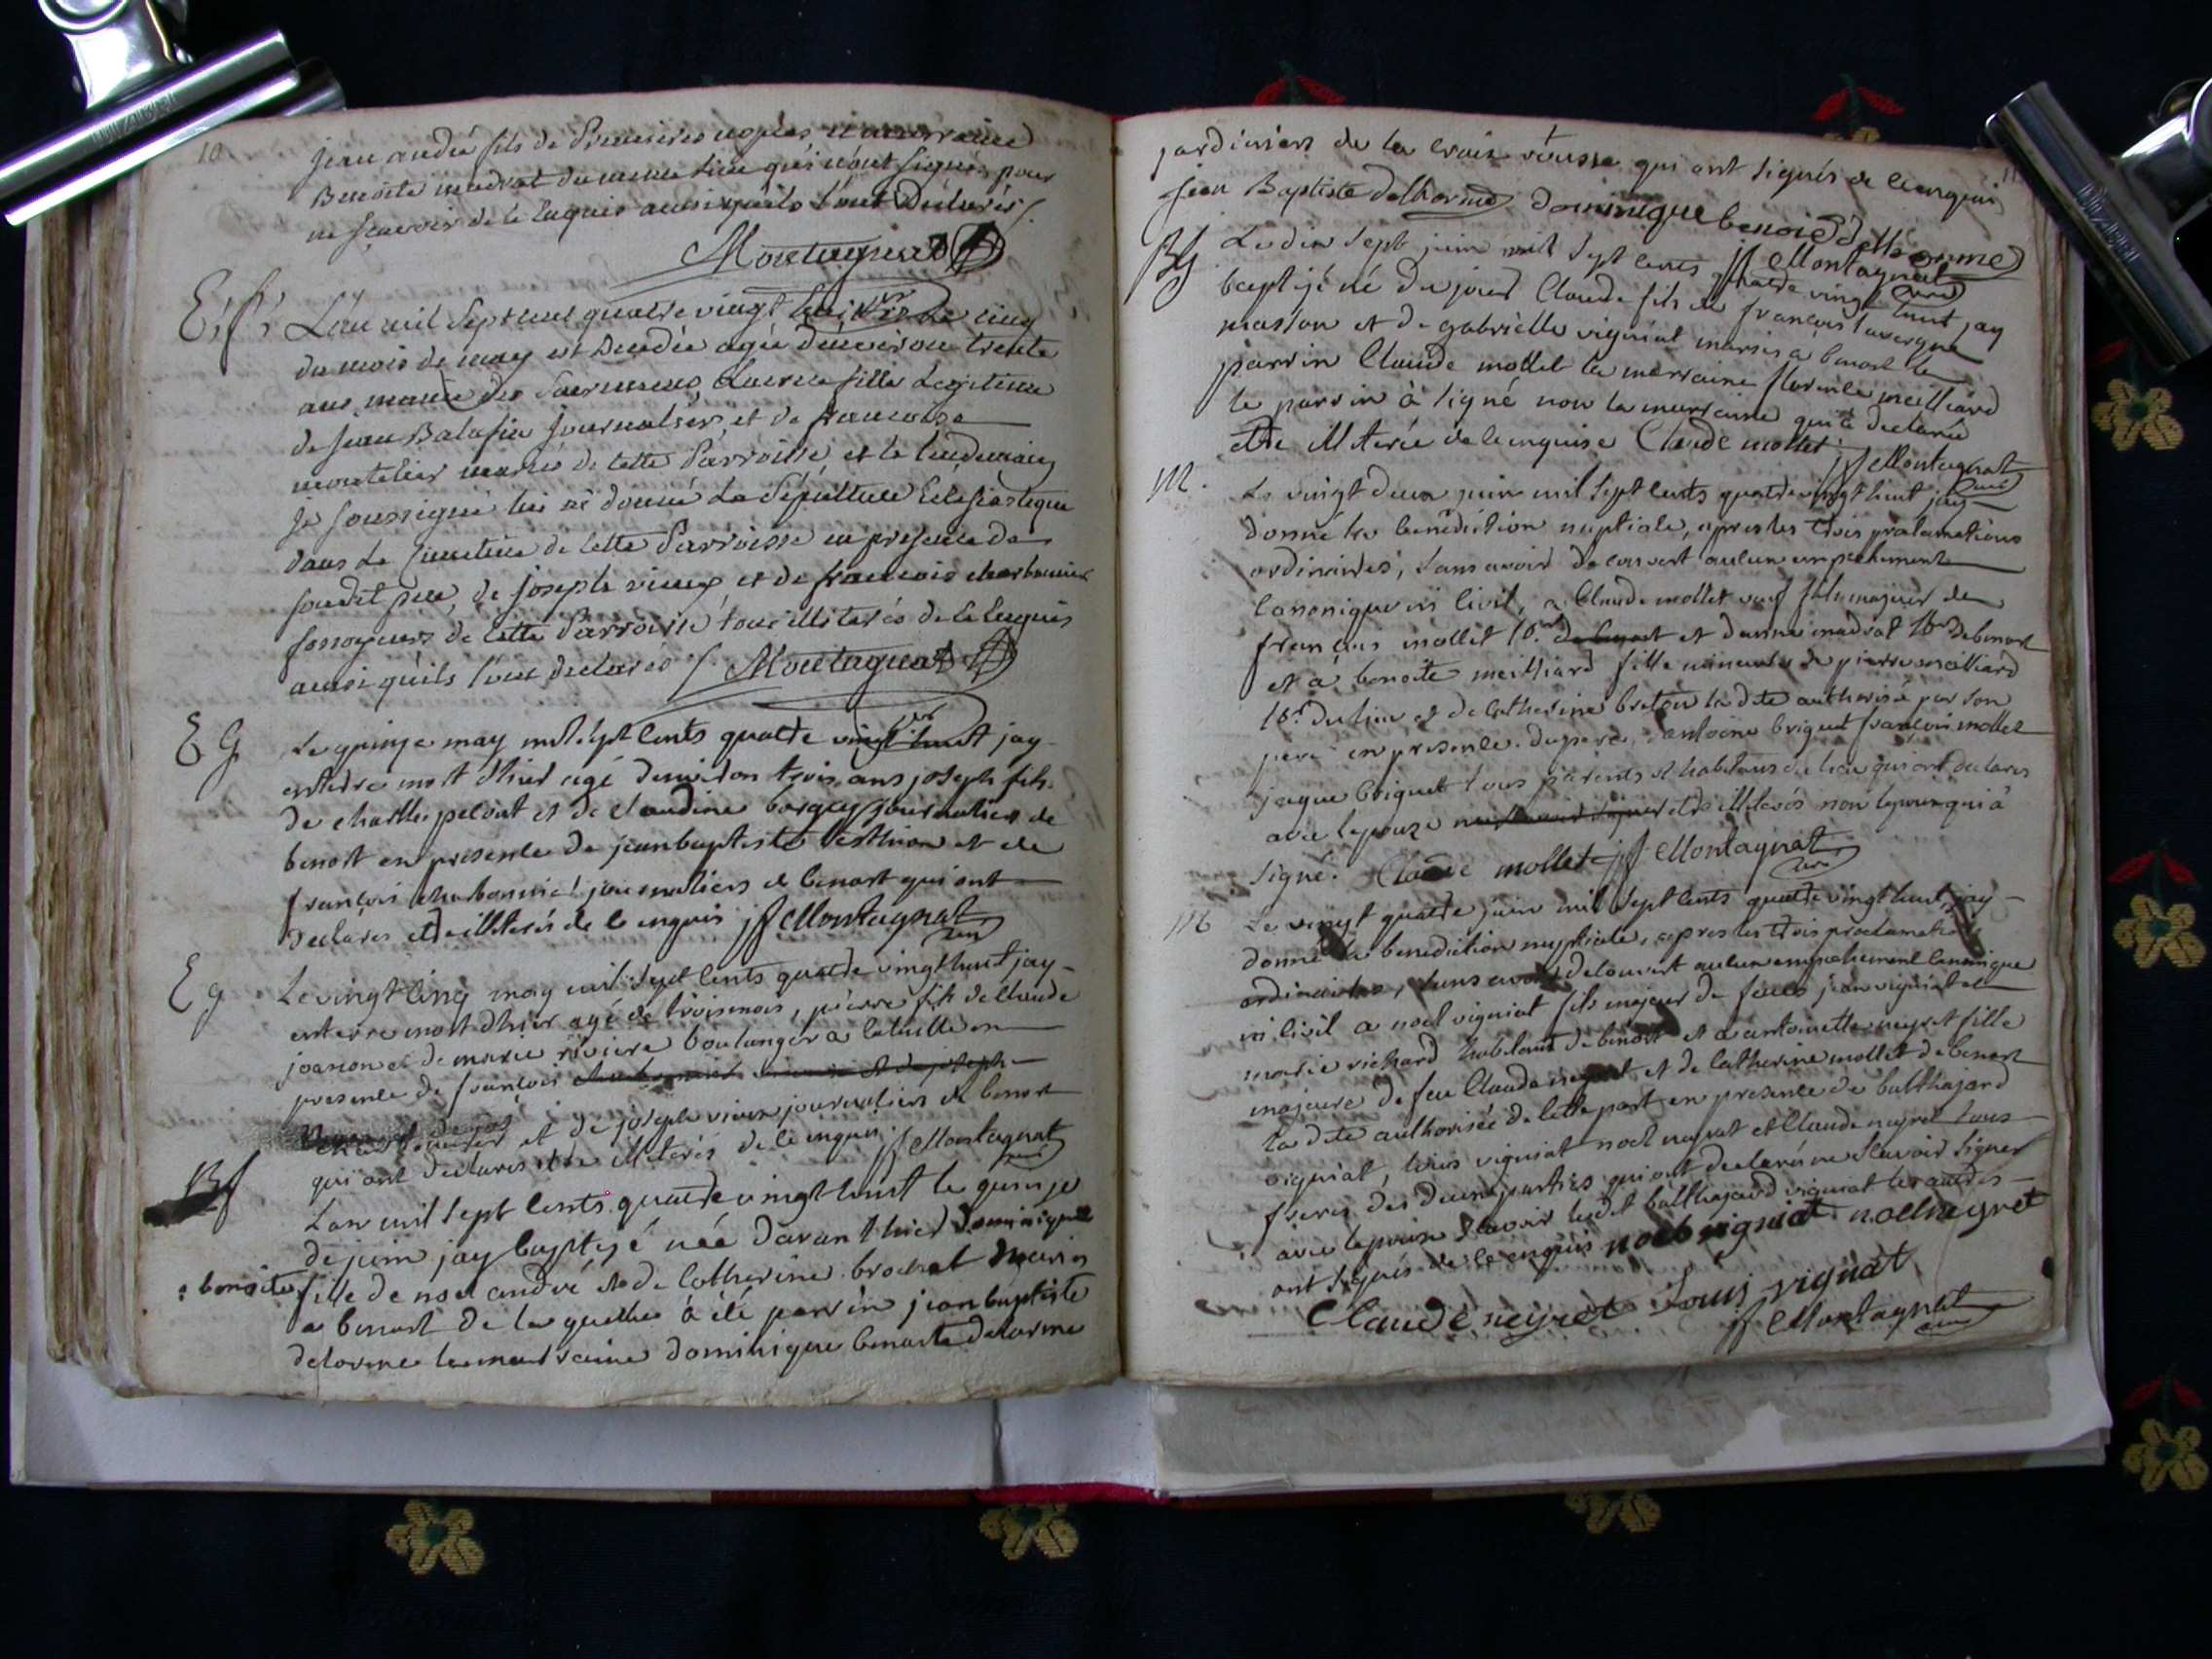 10
jean andré fils de Premieres nopces et marraine
Benoite madrat du meme lieu qui n'ont signés pour
ne sçavoir de ce Enquis ainsi quils l'ont Déclarés /.
Montagnat
E. f. L'an mil Sept cent quatre vingt huit et le cinq
du mois de may est Decedée agée d'environ trente
ans munie des Sacremens, Claudine fille Legitime
de Jean Balafin Journalier, et de francoise
montelier mariés de cette Parroisse, et le lendemain
Je soussigné lui ai donné La Sépulture Eclesiastique
dans Le Cimetiere de cette Parroisse en presence de
sondit pere, de joseph vieux, et de francois charbonier
fossoyeurs de cette Parroisse tous illiterés de ce Enquis
ainsi quils l'ont déclarés / Montagnat
E G Le quinze may mil sept cents quatre vingt huit jay
enterré mort d'hier agé denviron trois ans joseph fils
de charlle peloux et de claudine borgey journaliers de
benost en presence de jean baptiste et de
françois charbonnier journaliers de benost qui ont
declarés etre illiterés de ce enquis jf Montagnat
curé
E g Le vingt cinq may mil sept cents quatre vingt huit jay
enterré mort d'hier agé de trois mois, pierre fils de claude
joanon et de marie riviere boulanger a la
presence de françois
et de joseph vieux journaliers de benost
qui ont declarés etre illiterés de ce enquis jf Montagnat
curé
B f L'an mil sept cents quatre vingt huit le quinze
de juin jay baptizé née davant hier dominique
: benoite fille de noel andré et de catherine brochet mariés
a benost de la quelle a été parrin jean baptiste
delorme la marraine dominique benoite delorme
11
jardiniers de la croix rousse qui ont signés de ce enquis
Jean Baptiste delhorme dominique benoite delhorme
jf Montagnat
curé
B g Le dix sept juin mil sept cents quatre vingt huit jay
baptizé né du jour Claude fils de françois lavergne
masson et de gabrielle vigniat mariés a benost le
parrin Claude mollet la marraine florence meilliard
le parrin à signé non la marraine qui a declarée
etre illiterée de ce enquise Claude mollet jf Montagnat
curé
M. Le vingt deux juin mil sept cents quatre vingt huit jay
donné la benediction nuptiale, apres les trois proclamations
ordinaires, sans avoir decouvert aucun empechement
canonique ni civil, a Claude mollet veuf fils majeur de
françois mollet et danne madrat de benost
et a benoite meilliard fille mineure de pierre meilliard
du lieu et de catherine breton la dite authorisée par son
pere en presence du pere, antoine briguet françois mollet
jaque briguet tous parents et habitans du lieu qui ont declarés
avec lepouze etre illiterés non lepoux qui a
signé. Claude mollet jf Montagnat
curé
M Le vingt quatre juin mil sept cents quatre vingt huit, jay
donné la benediction nuptiale, apres les trois proclamations
ordinaires, sans avoir decouvert aucun empechement canonique
ni civil a noel vigniat fils majeur de feu jean vigniat et
marie richard habitant de benost et a antoinette neyret fille
majeure de feu Claude neyret et de catherine mollet de benost
la dite authorisée de cette part en presence de balthazard
vigniat, louis vigniat noel neyret et Claude neyret tous
freres des deux parties qui ont declaré ne scavoir signer
avec lepouze scavoir ledit balthazard vigniat les autres
ont signés de ce enquis noel vigniat noel neyret
Claude neyret Louis vignat
jf Montagnat
curé